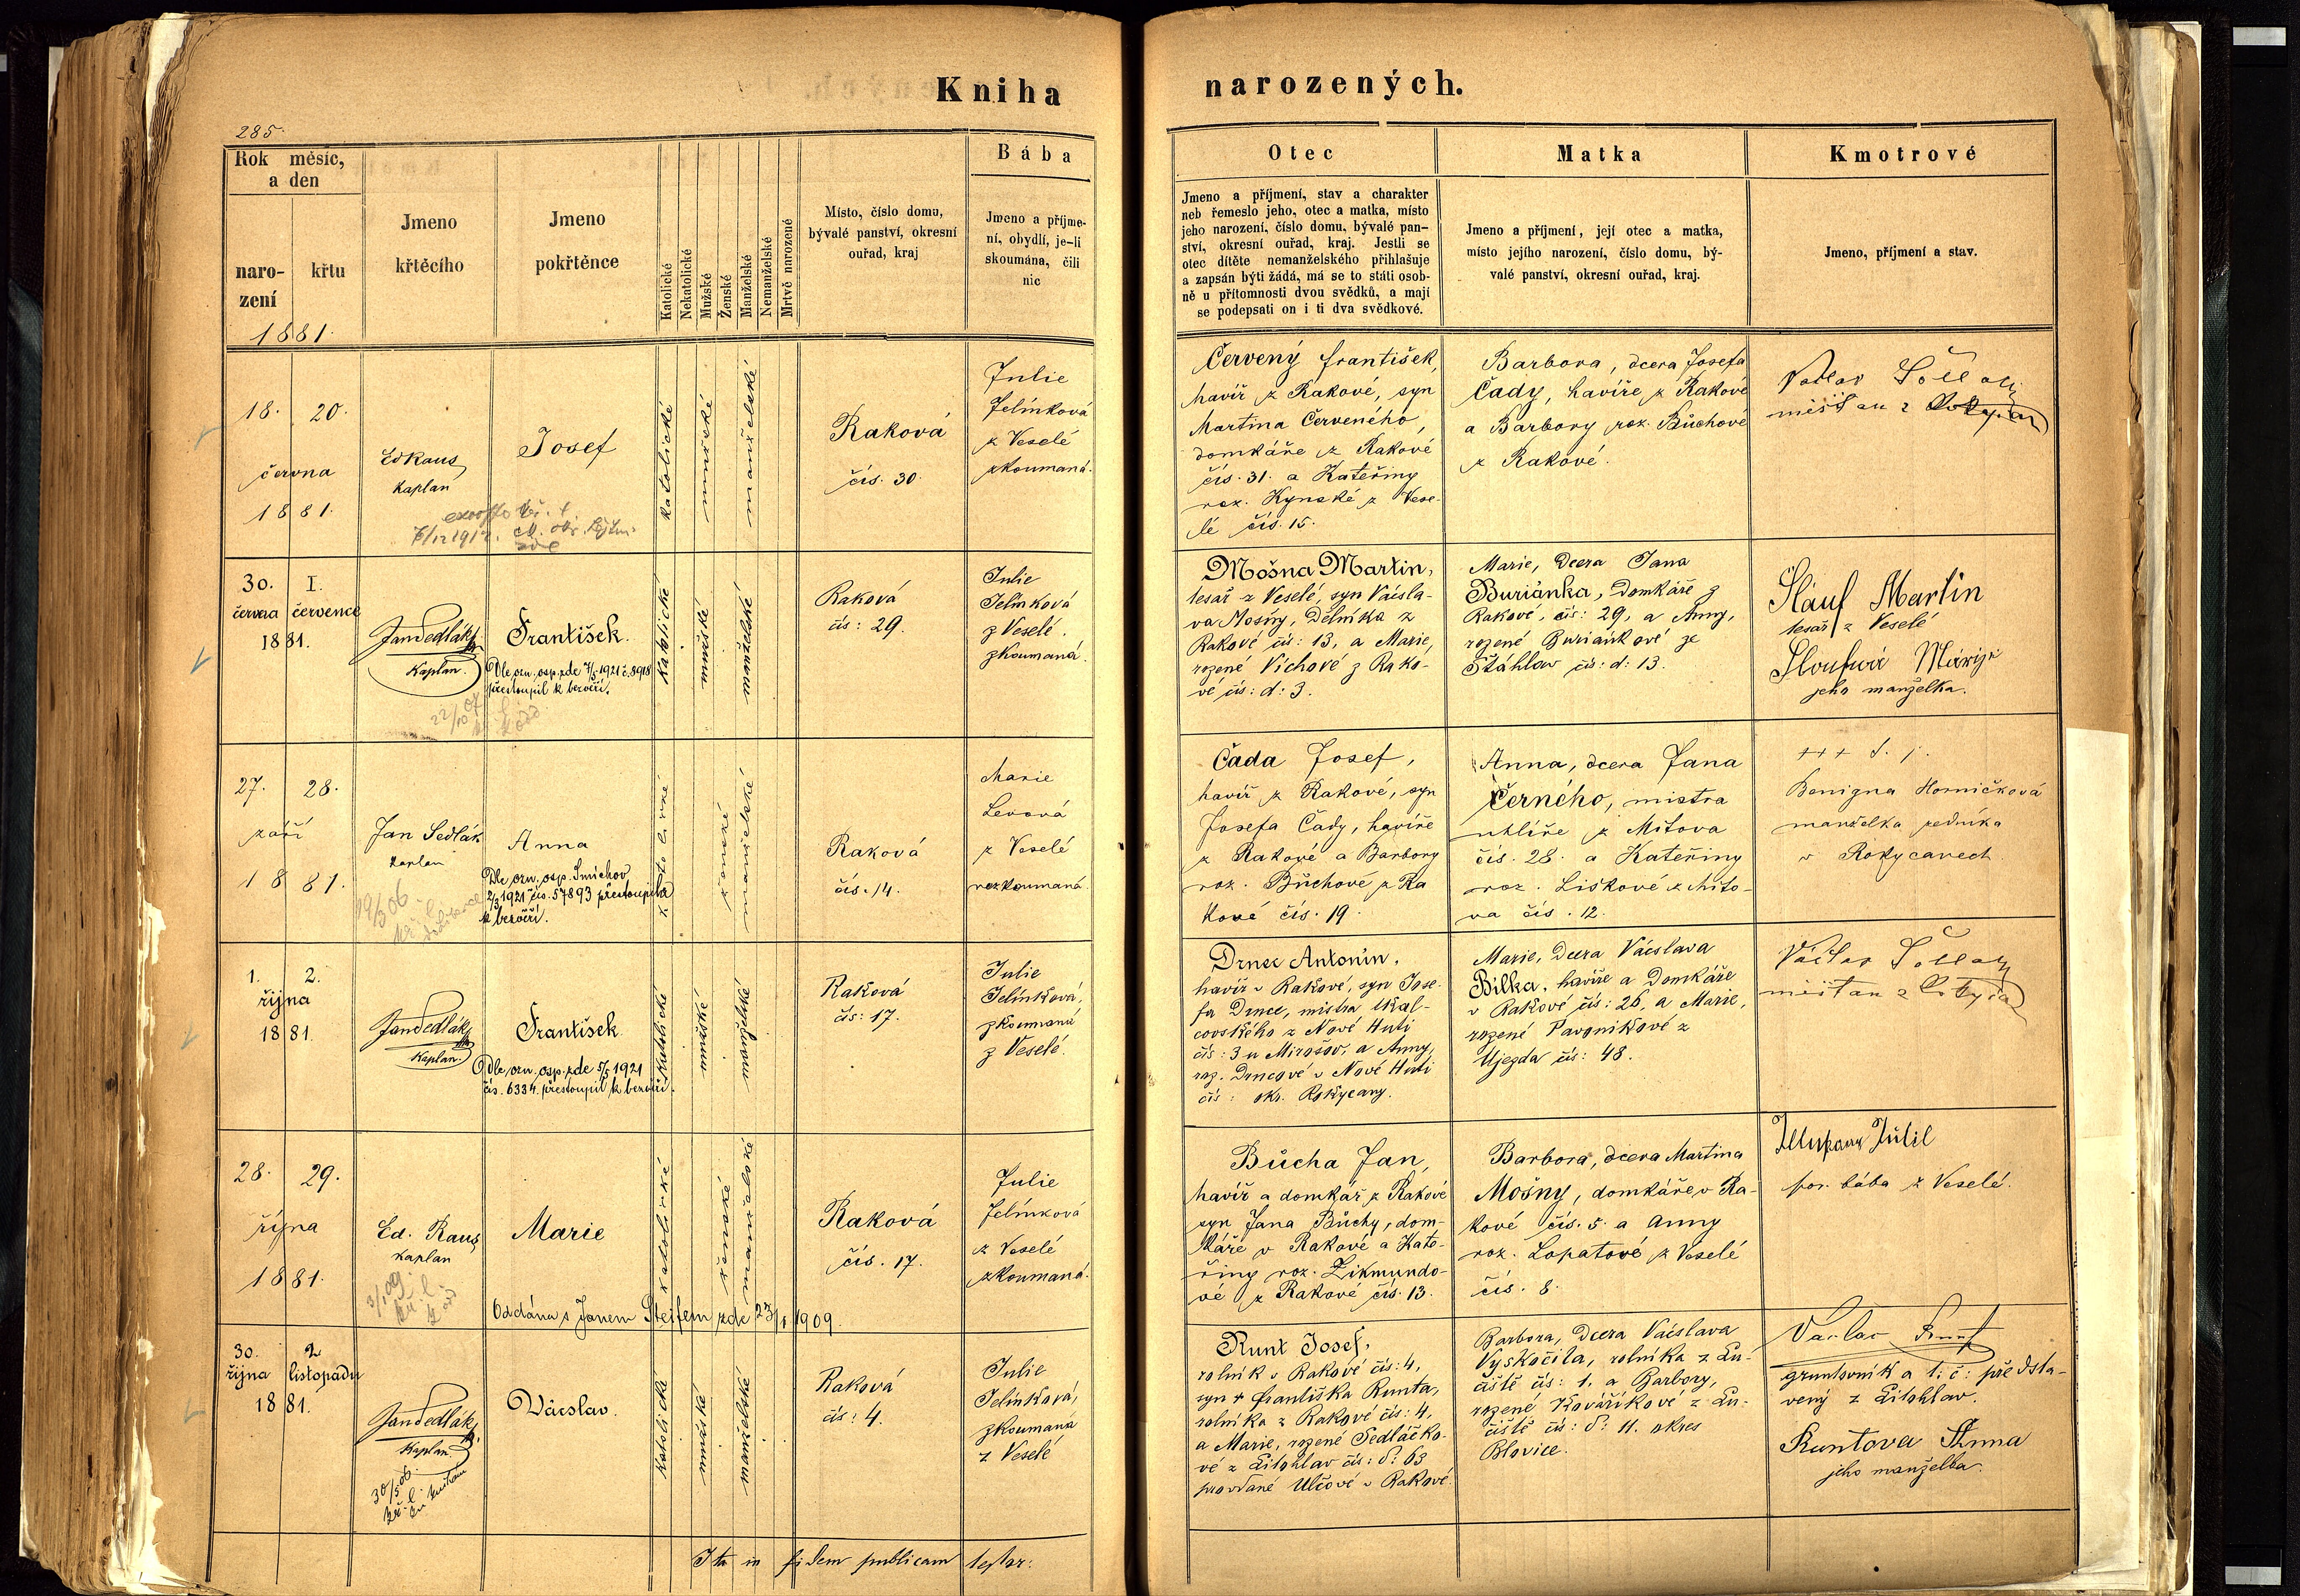 Kniha
narozených.
285.
Rok měsíc,
a den
naro-
zení
křtu
1881.
Jmeno
křtěcího
Jmeno
pokřtěnce
Katolické
Nekatolické
Mužské
Ženské
Manželské
Nemanželské
Mrtvě narozené
Místo, číslo domu,
bývalé panství, okresní
ouřad, kraj
Bába
Jmeno a příjme-
ní, obydlí, je-li
skoumána, čili
nic
Otec
Jmeno a příjmení, stav a charakter
neb řemeslo jeho, otec a matka, místo
jeho narození, číslo domu, bývalé pan-
ství, okresní ouřad, kraj. Jestli se
otec dítěte nemanželského přihlašuje
a zapsán býti žádá, má se to státi osob-
ně u přítomnosti dvou svědků, a mají
se podepsati on i ti dva svědkové.
Matka
Jmeno a příjmení, její otec a matka,
místo jejího narození, číslo domu, bý-
valé panství, okresní ouřad, kraj.
Kmotrové
Jmeno, příjmení a stav.
18. 20.
června
1881.
Ed Raus
Kaplan
Josef
katolické
mužské
manželské
Raková
čís. 30.
Julie
Jelínková
z Veselé
zkoumaná.
Červený František,
havíř z Rakové, syn
Martina Červeného,
domkáře z Rakové
čís. 31. a Kateřiny
roz. Kynské z Vese-
lé čís. 15.
Barbora, dcera Josefa
Čady, havíře z Rakové
a Barbory roz. Bůchové
z Rakové.
měšťan z
30. I.
června července
1881.
Jan Sedlák
Kaplan.
František.
Dle ozn. osp. zde 7/5 1921 č. 8918
přestoupil k bezvěří.
katolické
mužské
manželské
Raková
čís: 29.
Julie
Jelínková
z Veselé.
zkoumaná.
Mošna Martin,
tesař z Veselé, syn Václa-
va Mošny, dělníka z
Rakové čís: 13, a Marie,
rozené Víchové z Rako-
vé čís: d: 3.
Marie, dcera Jana
Buriánka, domkáře z
Rakové, čís: 29, a Anny,
rozené Buriankové ze
Štáhlav čís: d: 13.
Slauf Martin
tesař z Veselé
jeho manželka.
27. 28.
září
1881.
Jan Sedlák
kaplan
Anna
Dle ozn. osp. Smíchov
2/3 1921 čís. 57893 přestoupila
k bezvěří.
katolické
ženské
manželské
Raková
čís. 14.
Marie
Levová
z Veselé
nezkoumaná.
Čada Josef,
havíř z Rakové, syn
Josefa Čady, havíře
z Rakové a Barbory
roz. Bůchové z Ra
kové čís. 19.
Anna, dcera Jana
Černého, mistra
uhlíře z Mítova
čís. 28. a Kateřiny
roz. Liškové z Míto-
va čís. 12.
+++
Benigna Horničková
manželka zedníka
v Rokycanech
1. 2.
října
1881.
Jan Sedlák
Kaplan.
František
Dle ozn. osp. zde 5/5 1921
čís. 6334 přestoupil k bezvěří.
katolické
mužské
manželské
Raková
čís: 17.
Julie
Jelínková,
zkoumaná
z Veselé.
Drnec Antonín,
havíř v Rakové, syn Jose-
fa Drnce, mistra tkal-
covského z Nové Huti
čís: 3 u Mirošov, a Anny,
roz. Drncové v Nové Huti
čís: okr. Rokycany.
Marie, dcera Vácslava
Bílka, havíře a domkáře
v Rakové čís: 26, a Marie,
rozené Pavonikové z
Újezda čís: 48.
měšťan z
28. 29.
října
1881.
Ed. Raus,
kaplan
Marie
katolické
ženské
manželské
Oddána s Janem Stejfem zde 23/1 1909.
Raková
čís. 17.
Julie
Jelínková
z Veselé
zkoumaná.
Bůcha Jan,
havíř a domkář z Rakové
syn Jana Bůchy, dom-
káře v Rakové a Kate-
řiny roz. Zikmundo-
vé z Rakové čís. 13.
Barbora, dcera Martina
Mošny, domkáře v Ra-
kové čís. 5. a Anny
roz. Lopatové z Veselé
čís. 8.
por. bába z Veselé.
30. 2
října listopadu
1881.
Jan Sedlák
Kaplan
Vácslav.
katolické
mužské
manželské
Raková
čís: 4.
Julie
Jelínková,
zkoumaná
z Veselé
Runt Josef,
rolník v Rakové čís: 4,
syn + Františka Runta,
rolníka z Rakové čís: 4,
a Marie, rozené Sedláčko-
vé z Litohlav čís: d: 63
provdané Ulčové v Rakové
Barbora, dcera Vácslava
Vyskočila, rolníka z Lu-
čiště čís: 1. a Barbory,
rozené Kovaříkové z Lu-
čiště čís: d: 11. okres
Blovice.
Václav Runt
gruntovník a t: č: předsta-
vený z Litohlav.
Runtova Anna
jeho manželka.
Ita in fidem publicam testor: